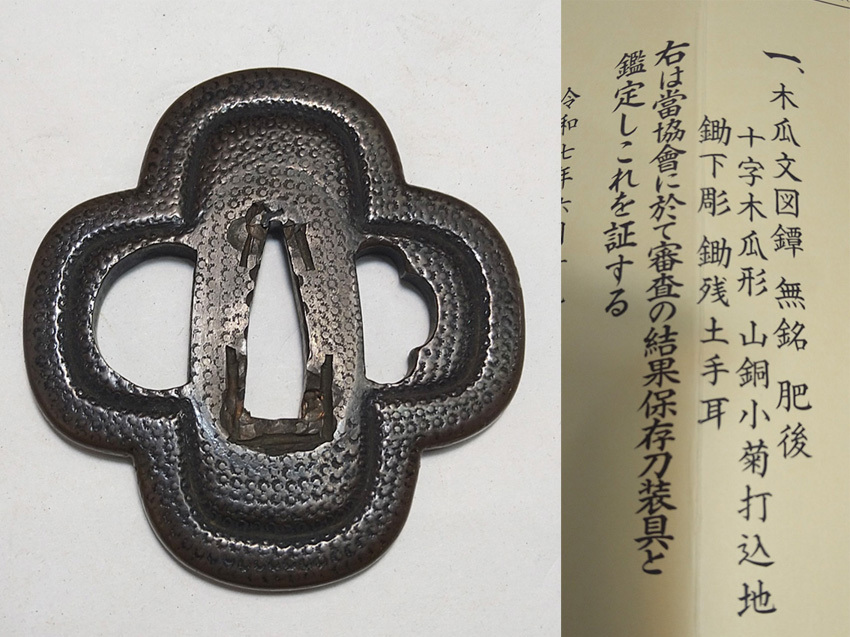 一、木瓜文図鐔 無銘 肥後
十字木瓜形 山銅小菊打込地
鋤下彫 鋤残土手耳
右は當協會に於て審査の結果保存刀装具と
鑑定しこれを証する
令和七年六月